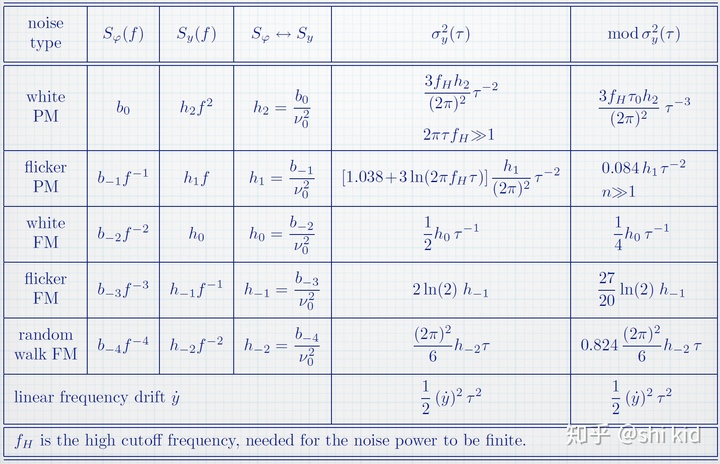 noise type | Sφ(f) | Sy(f) | Sφ ↔ Sy | σ²y(τ) | mod σ²y(τ)
white PM | b₀ | h₂f² | h₂ = b₀/ν₀² | 3f_H h₂/(2π)² τ⁻² 2πτf_H≫1 | 3f_H τ₀h₂/(2π)² τ⁻³
flicker PM | b₋₁f⁻¹ | h₁f | h₁ = b₋₁/ν₀² | [1.038+3 ln(2πf_Hτ)] h₁/(2π)² τ⁻² | 0.084 h₁τ⁻² n≫1
white FM | b₋₂f⁻² | h₀ | h₀ = b₋₂/ν₀² | 1/2 h₀ τ⁻¹ | 1/4 h₀ τ⁻¹
flicker FM | b₋₃f⁻³ | h₋₁f⁻¹ | h₋₁ = b₋₃/ν₀² | 2 ln(2) h₋₁ | 27/20 ln(2) h₋₁
random walk FM | b₋₄f⁻⁴ | h₋₂f⁻² | h₋₂ = b₋₄/ν₀² | (2π)²/6 h₋₂τ | 0.824 (2π)²/6 h₋₂ τ
linear frequency drift ẏ | 1/2 (ẏ)² τ² | 1/2 (ẏ)² τ²
f_H is the high cutoff frequency, needed for the noise power to be finite.
知乎 @shi kid